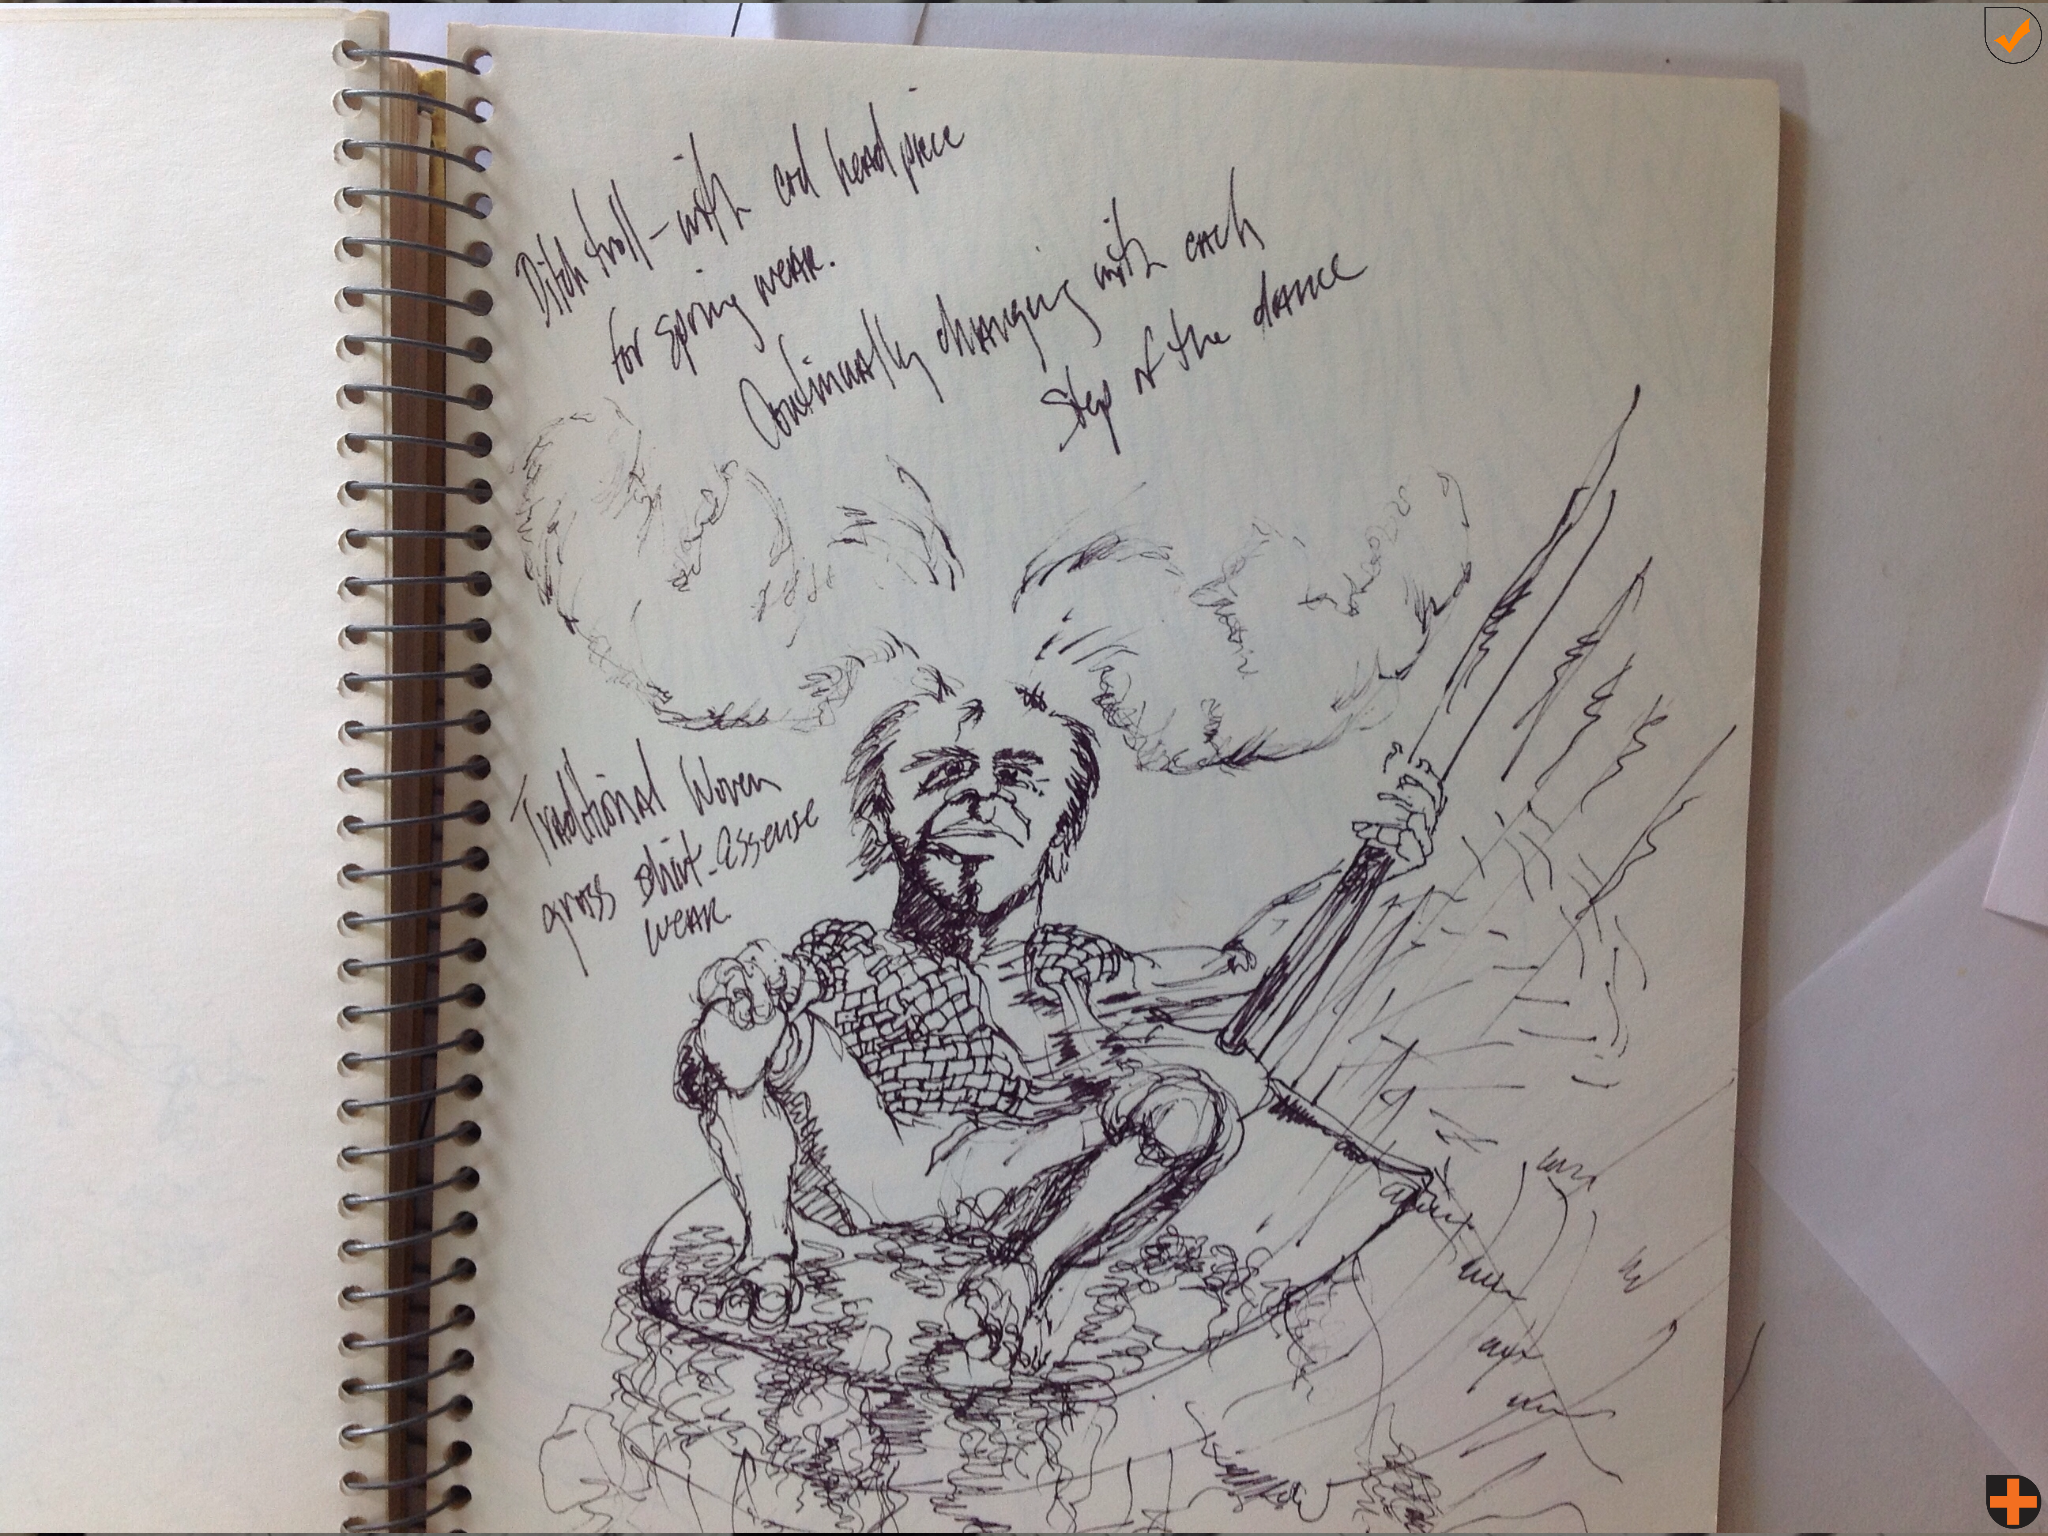 Ditch troll - with cod head piece
for spring wear.
Continually changing with each
step of the dance
Traditional Woven
grass shirt - assense
wear.